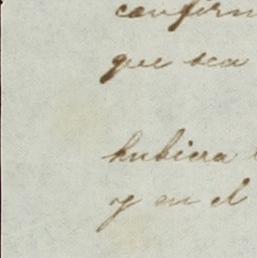 confirm
que sea
hubiera
y en el